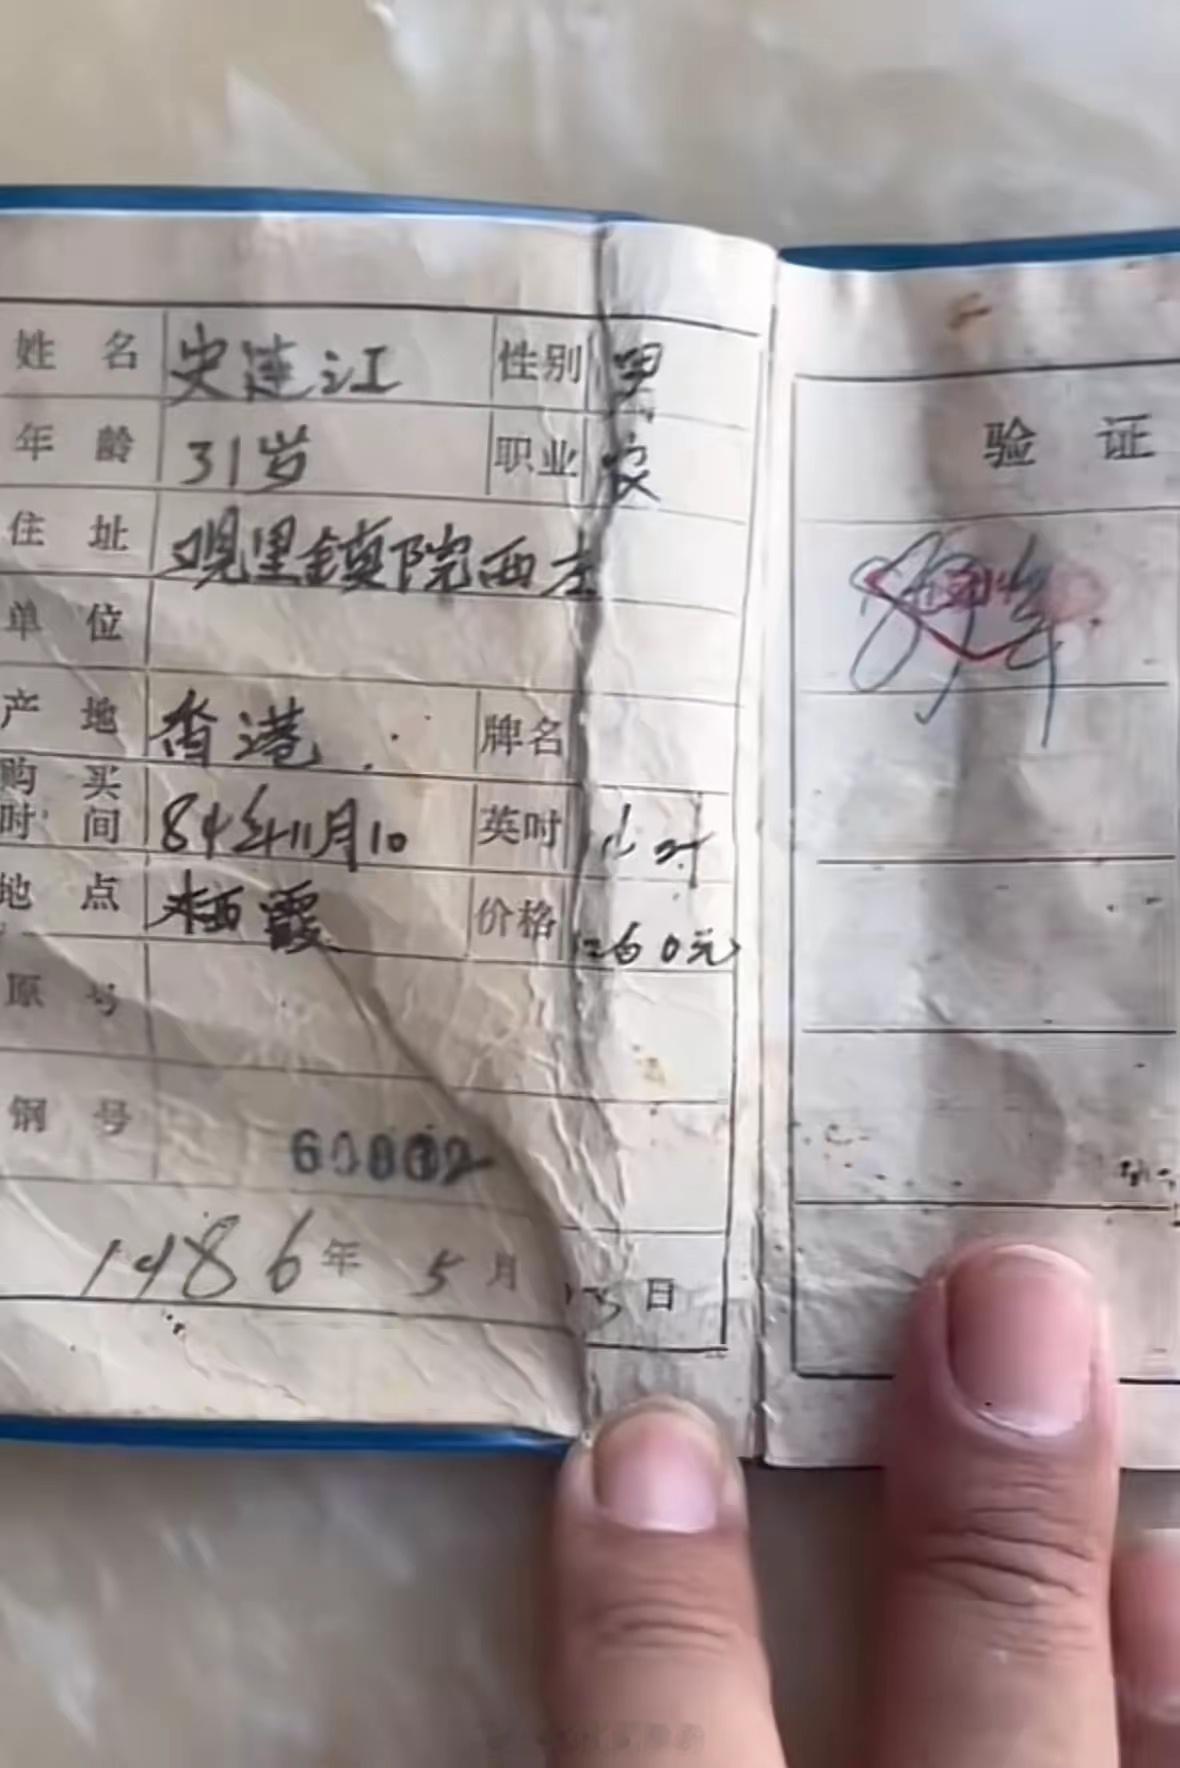 姓名 史连江 性别 男
年龄 31岁 职业 农
住址 观里镇院西庄
单位
产地 香港 牌名
购买时间 84年11月10 英吋
地点 栖霞 价格 60元
原号
钢号
1986年 5月 日
验证